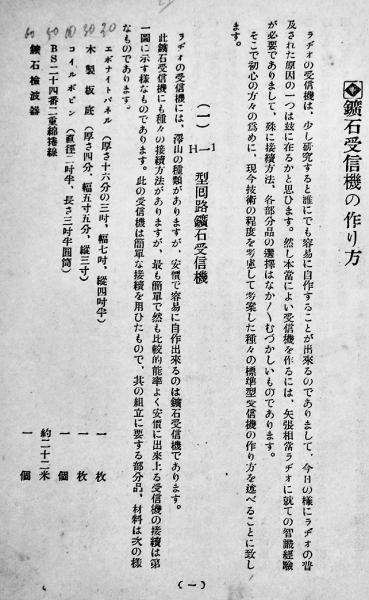 鑛石受信機の作り方
ラヂオの受信機は、少し硏究すると誰にでも容易に自作することが出來るのでありまして、今日の樣にラヂオの普
及された原因の一つは玆に在るかと思ひます。然し本當によい受信機を作るには、矢張相當ラヂオに就ての智識經驗
が必要でありまして、殊に接續方法、各部分品の選擇はなか〳〵むづかしいものであります。
そこで初心の方々の爲めに、現今技術の程度を考慮して考案した種々の標準型受信機の作り方を述べることに致し
ます。
(一) H—1 型回路鑛石受信機
ラヂオの受信機には、澤山の種類がありますが、安價で容易に自作出來るのは鑛石受信機であります。
此鑛石受信機にも種々の接續方法がありますが、最も簡單で然も比較的能率よく安價に出來上る受信機の接續は第
一圖に示す樣なものであります。此の受信機は簡單な接續を用ひたもので、其の組立に要する部分品、材料は次の樣
なものであります。
エボナイトパネル (厚さ十六分の三吋、幅七吋、縱四吋半) 一枚
木製板底 (厚さ四分、幅五寸五分、縱三寸) 一枚
コイルボビン (直徑二吋半、長さ三吋半圓筒) 一個
BS二十四番二重綿捲線 約二十二米
鑛石檢波器 一個
(一)